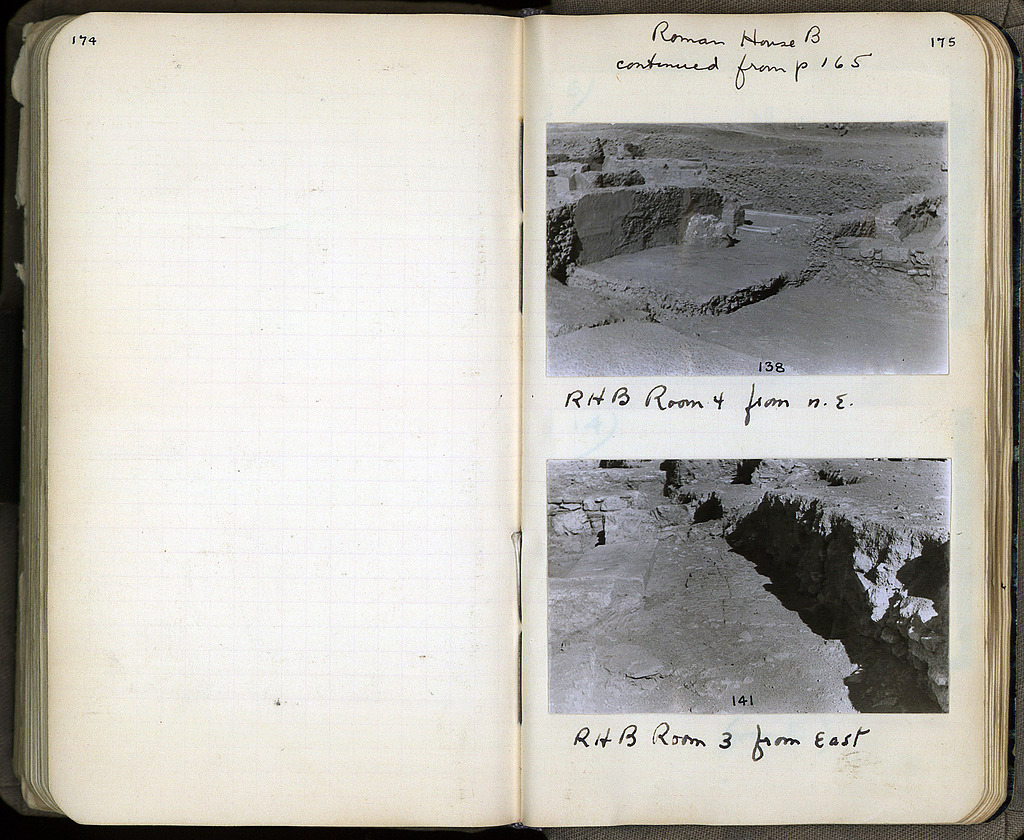 174
Roman House B
175
continued from p 165
138
RHB Room 4 from n.E.
141
RHB Room 3 from East